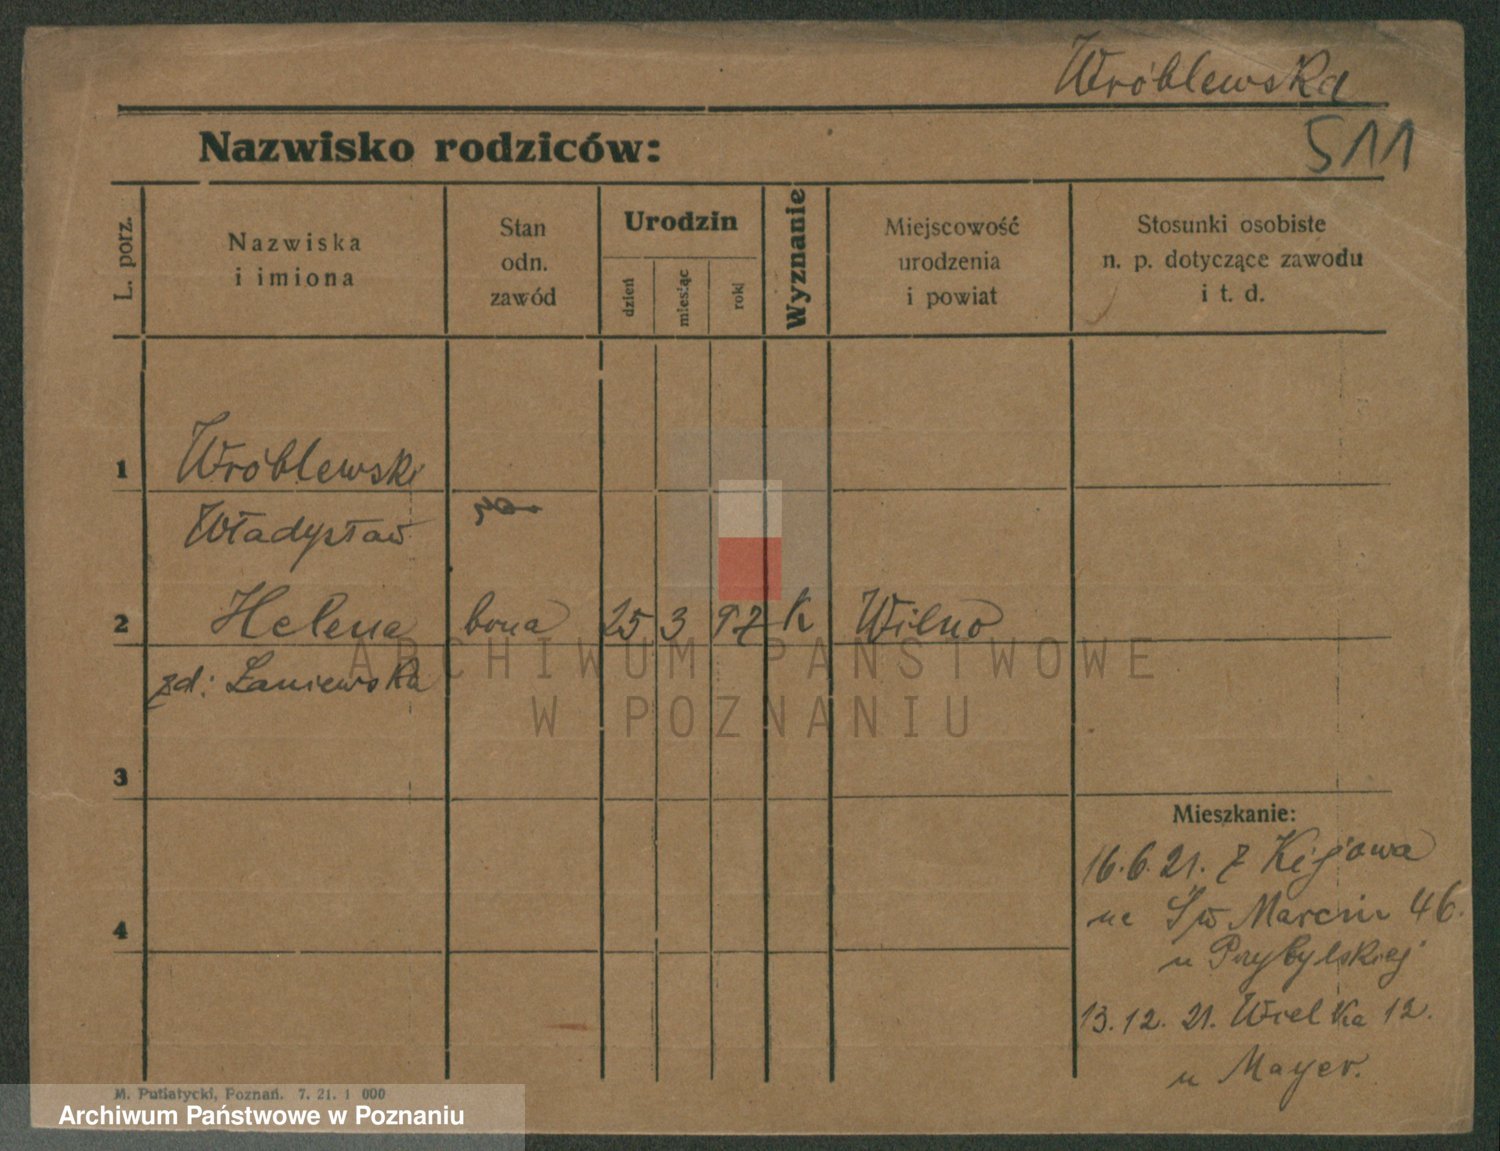 Wróblewska
511
Nazwisko rodziców:
L. porz.
Nazwiska
i imiona
Stan
odn.
zawód
Urodzin
dzień
miesiąc
rok
Wyznanie
Miejscowość
urodzenia
i powiat
Stosunki osobiste
n. p. dotyczące zawodu
i t. d.
1 Wróblewski
Władysław
2 Helena bona 25 3 97 K Wilno
zd: Łaniewska
ARCHIWUM PAŃSTWOWE
W POZNANIU
3
Mieszkanie:
16.6.21. z Kijowa
na Św Marcin 46.
u Przybylskiej
4
13.12.21. Wielka 12.
u Mayer.
M. Putiatycki, Poznań. 7. 21. 1 000
Archiwum Państwowe w Poznaniu